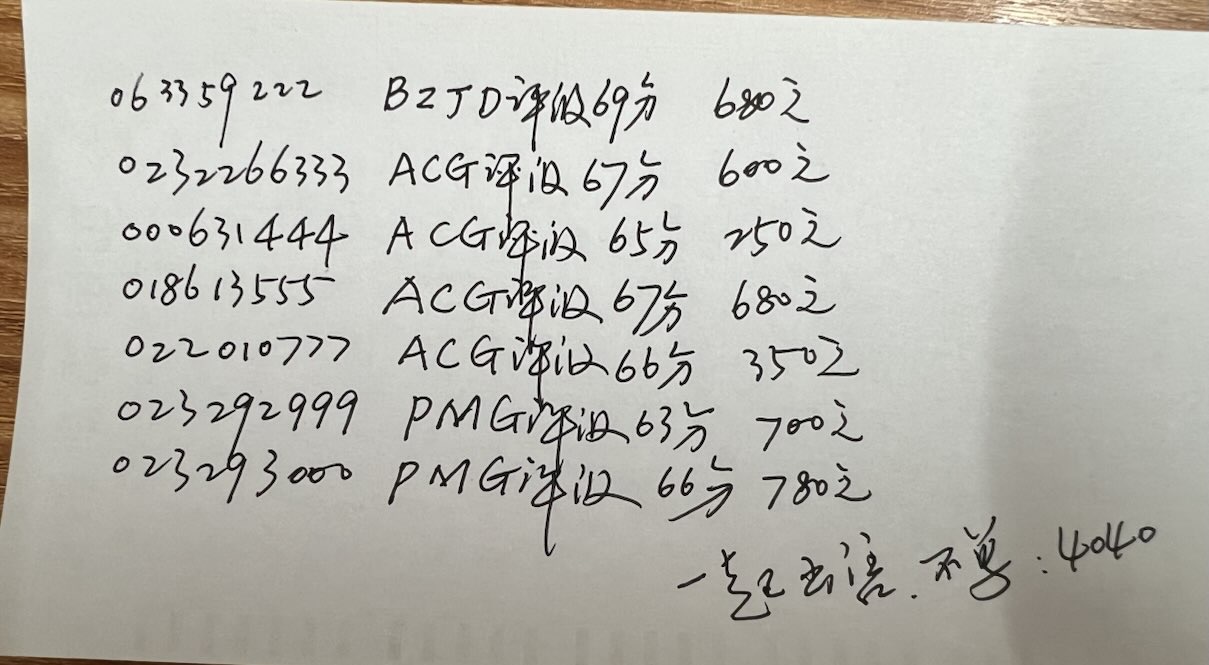 063359222 BZJD评级69分 680元
0232266333 ACG评级67分 600元
000631444 ACG评级65分 250元
018613555 ACG评级67分 680元
022010777 ACG评级66分 350元
023292999 PMG评级63分 700元
023293000 PMG评级66分 780元
一起出售.不单:4040